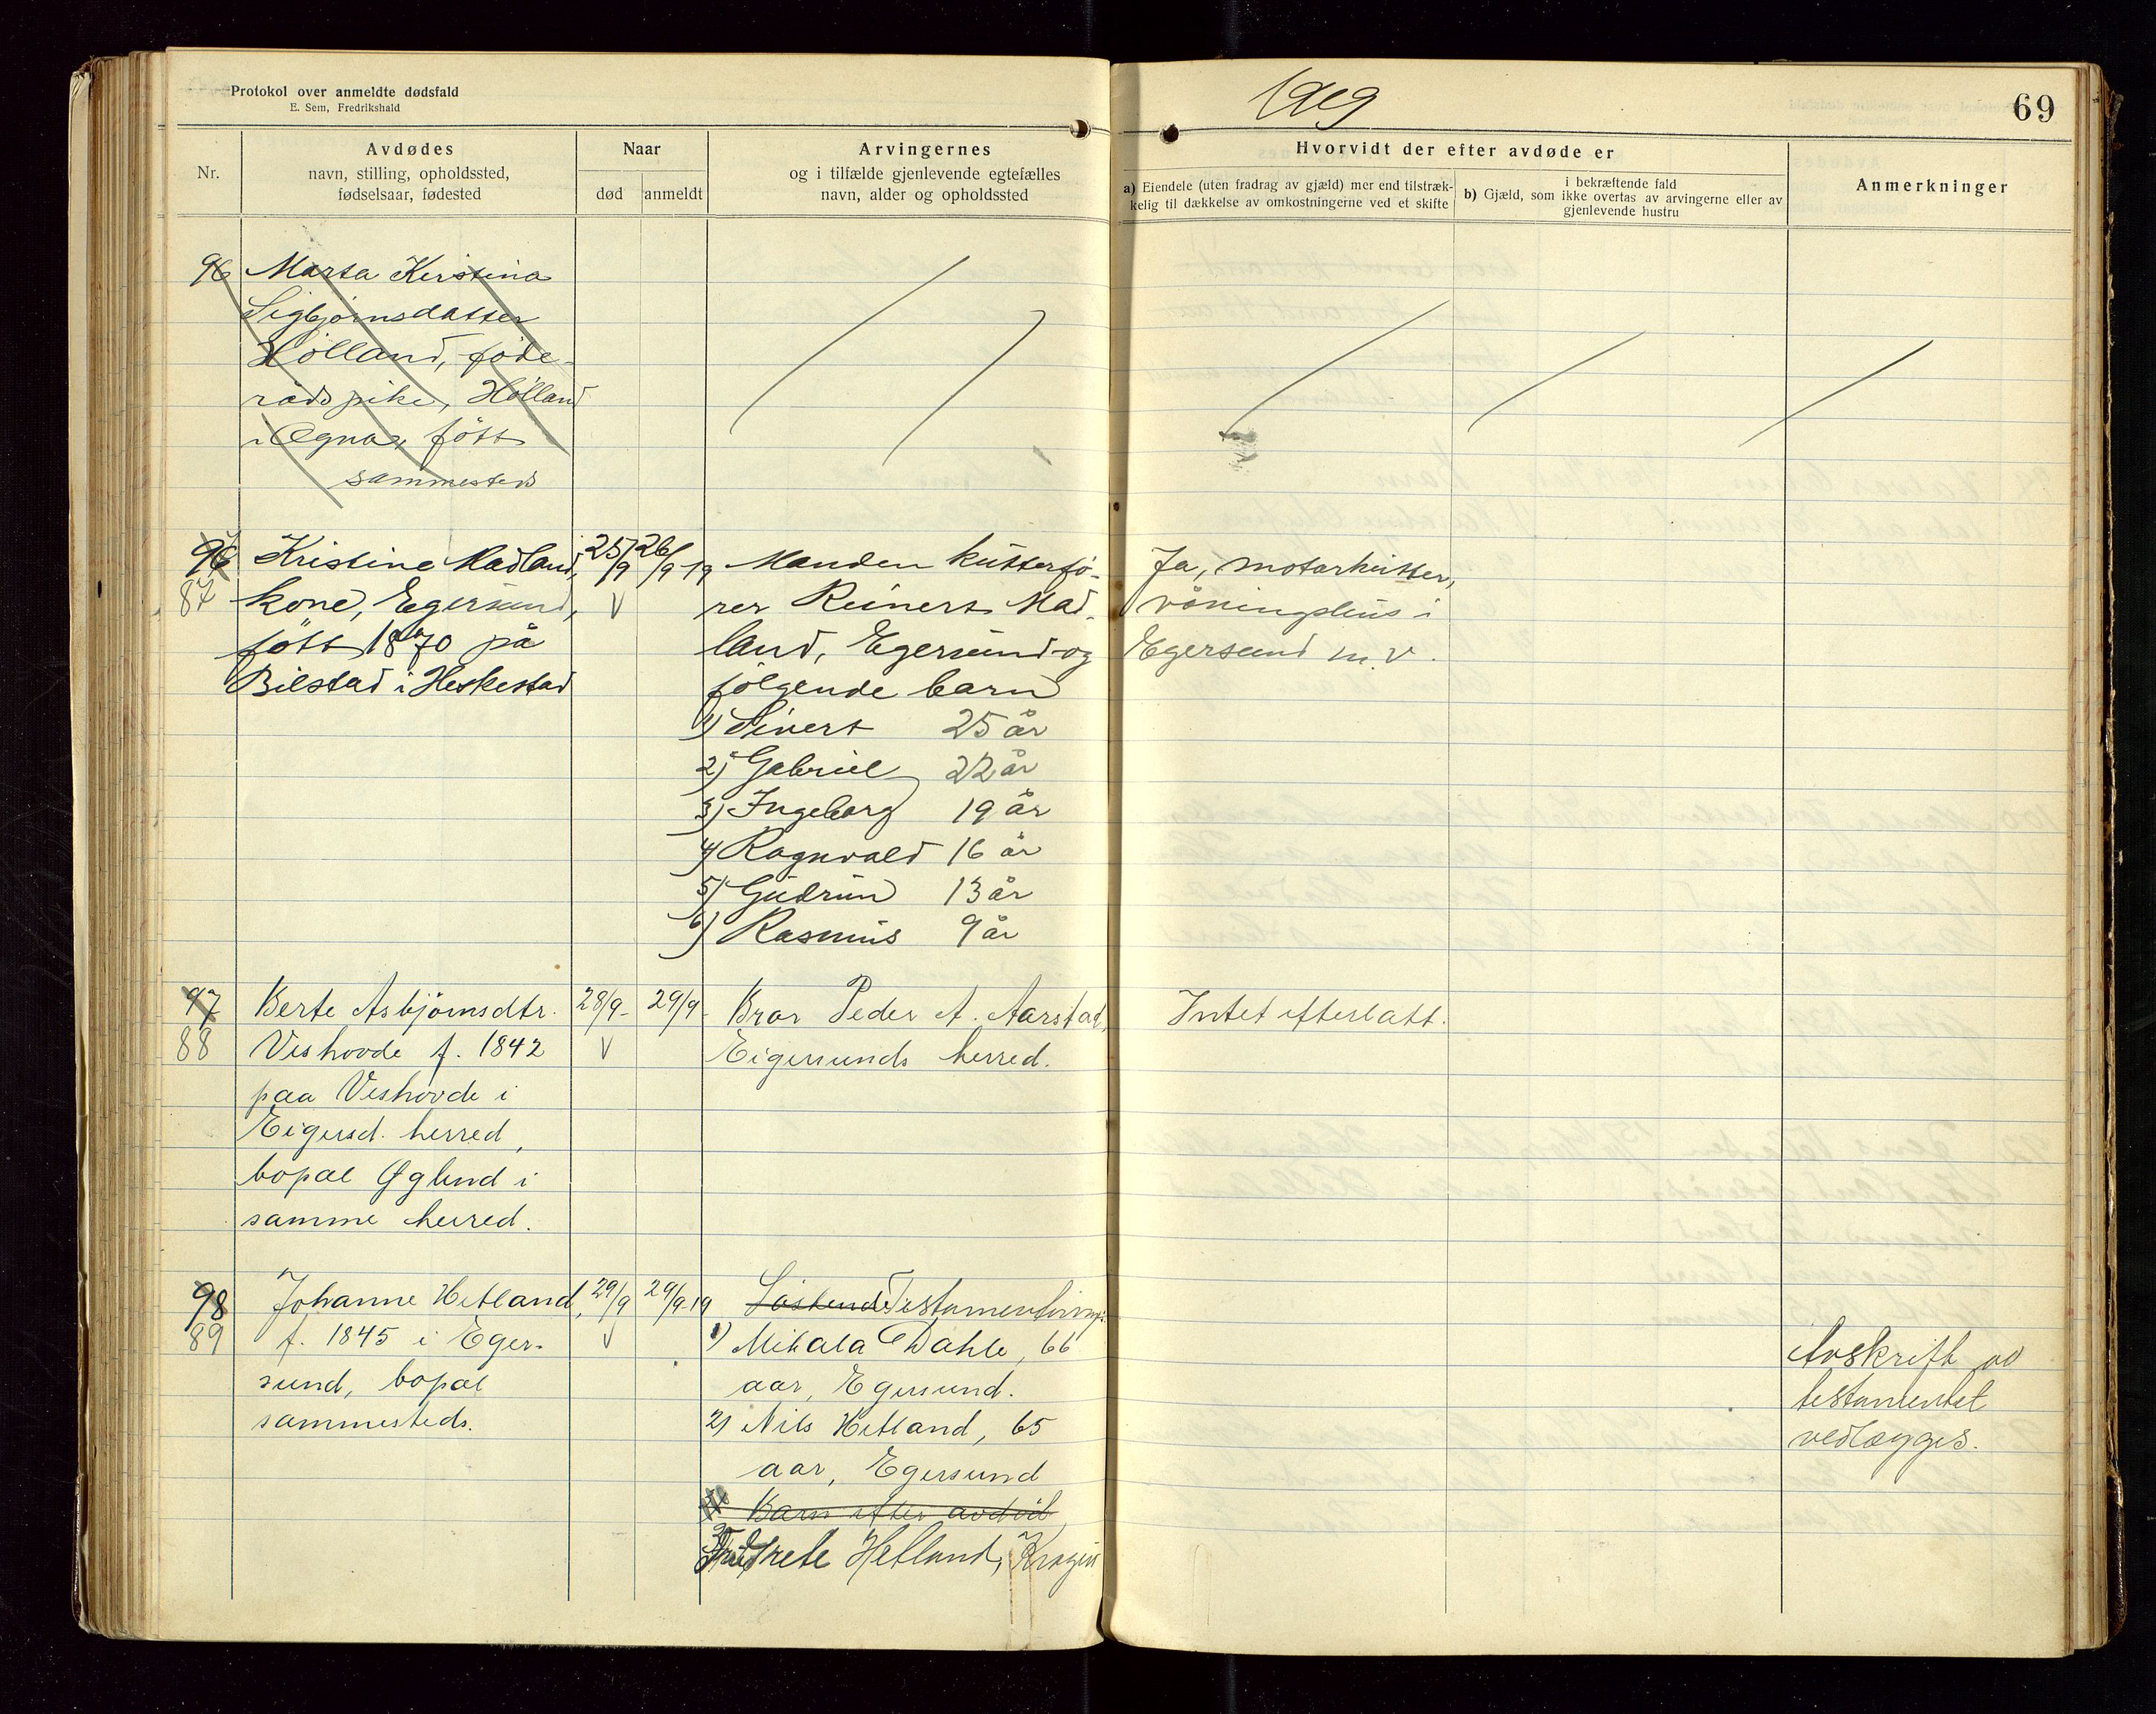 Protokol over anmeldte dødsfald
E. Sem, Fredrikshald
1919
69
Nr.
Avdødes
navn, stilling, opholdssted,
fødselsaar, fødested
Naar
død
anmeldt
Arvingernes
og i tilfælde gjenlevende egtefælles
navn, alder og opholdssted
Hvorvidt der efter avdøde er
a) Eiendele (uten fradrag av gjæld) mer end tilstræk-
kelig til dækkelse av omkostningerne ved et skifte
i bekræftende fald
b) Gjæld, som ikke overtas av arvingerne eller av
gjenlevende hustru
Anmerkninger
96 Marta Kristina
Sigbjørnsdatter
Hölland, föde-
rådspike, Hölland
i Ogna, fött
sammesteds
96
87
Kristine Madland,
kone, Egersund,
fött 1870 på
Bilstad i Heskestad
25/9
26/9-19
V
Manden kutterfö-
rer Reinert Mad-
land, Egersund og
følgende barn
1) Sivert 25 år
2) Gabriel 22 år
3) Ingeborg 19 år
4) Ragnvald 16 år
5) Gudrun 13 år
6) Rasmus 9 år
Ja, motorkutter,
våningshus i
Egersund m.v.
97
88
Berte Asbjörnsdtr.
Veshovde f. 1842
paa Veshovde i
Eigersd. herred,
bopæl Øglend i
samme herred.
28/9-
29/9-
V
Bror Peder A. Aarstad,
Eigersunds herred.
Intet efterlatt.
98
89
Johanne Hetland,
f. 1845 i Eger-
sund, bopæl
sammesteds.
29/9
29/9-19
V
Söskende Testamentarving:
1) Mikala Dahle, 66
aar, Egersund.
2) Nils Hetland, 65
aar, Egersund
Barn efter avdöd
Hetland,
Avskrift av
testamentet
vedlægges.